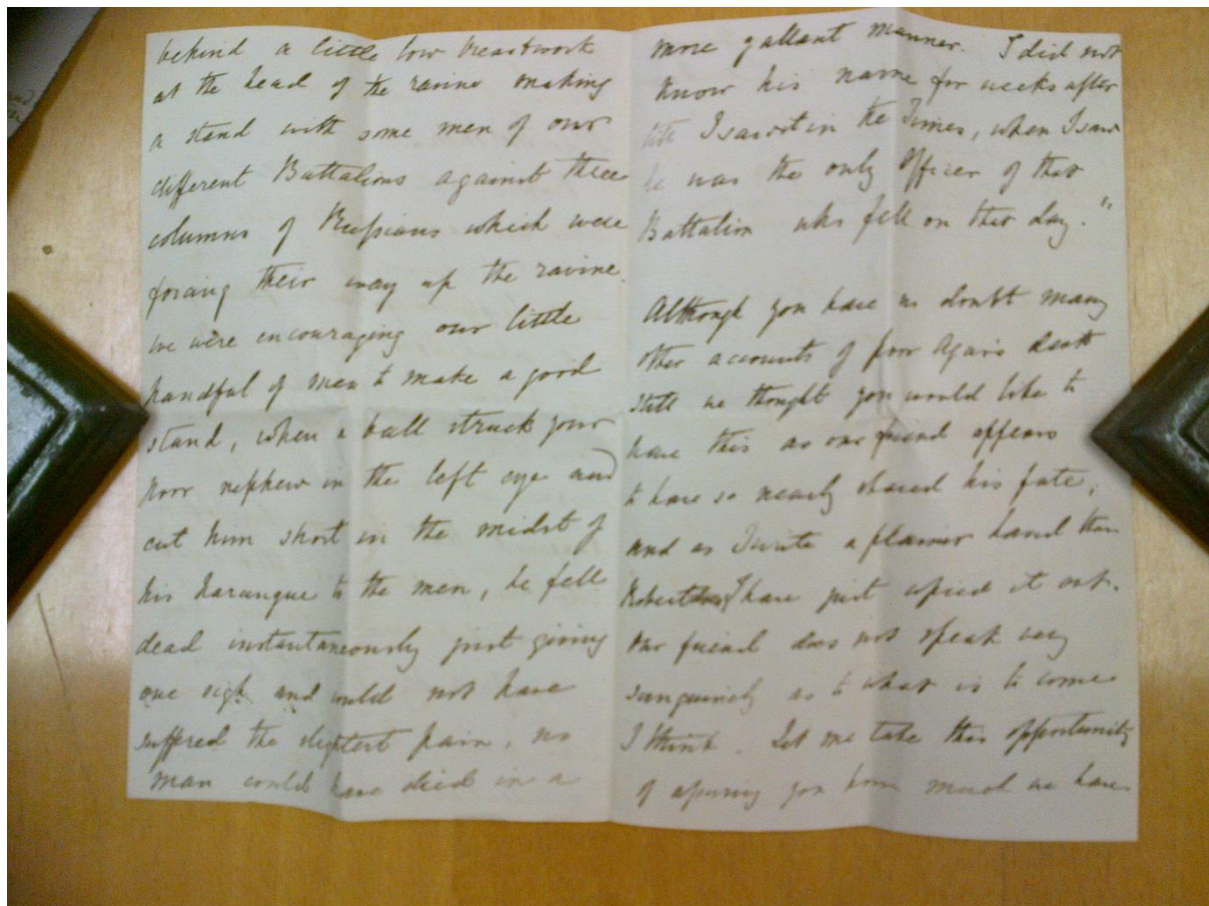 behind a little low breastwork
at the head of the ravine making
a stand with some men of our
different Battalions against three
columns of Russians which were
forcing their way up the ravine
we were encouraging our little
handful of men to make a good
stand, when a ball struck your
poor nephew in the left eye and
cut him short in the midst of
his harangue to the men, he fell
dead instantaneously just giving
one sigh and could not have
suffered the slightest pain, no
man could have died in a
more gallant manner. I did not
know his name for weeks after
I saw it in the Times, when I saw
he was the only Officer of that
Battalion who fell on that day."
Although you have no doubt many
other accounts of poor Agar's death
still we thought you would like to
have this as our friend appears
to have so nearly shared his fate,
and as I write a plainer hand than
Robert does I have just copied it out.
Our friend does not speak very
sanguinely as to what is to come
I think. Let me take this opportunity
of assuring you how much we have